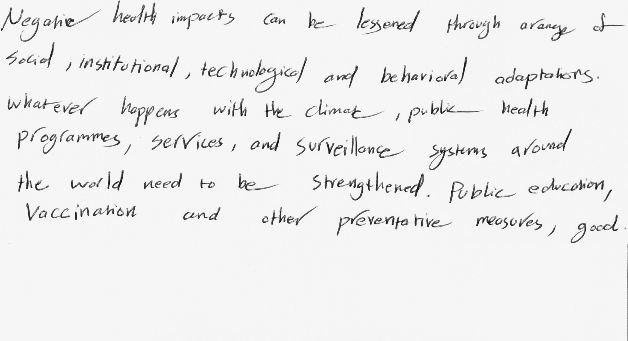 Negative health impacts can be lessened through arange of
social, institutional, technological and behavioral adaptations.
whatever happens with the climate, public health
programmes, services, and surveillance systems around
the world need to be strengthened. Public education,
Vaccination and other preventative measures, good.